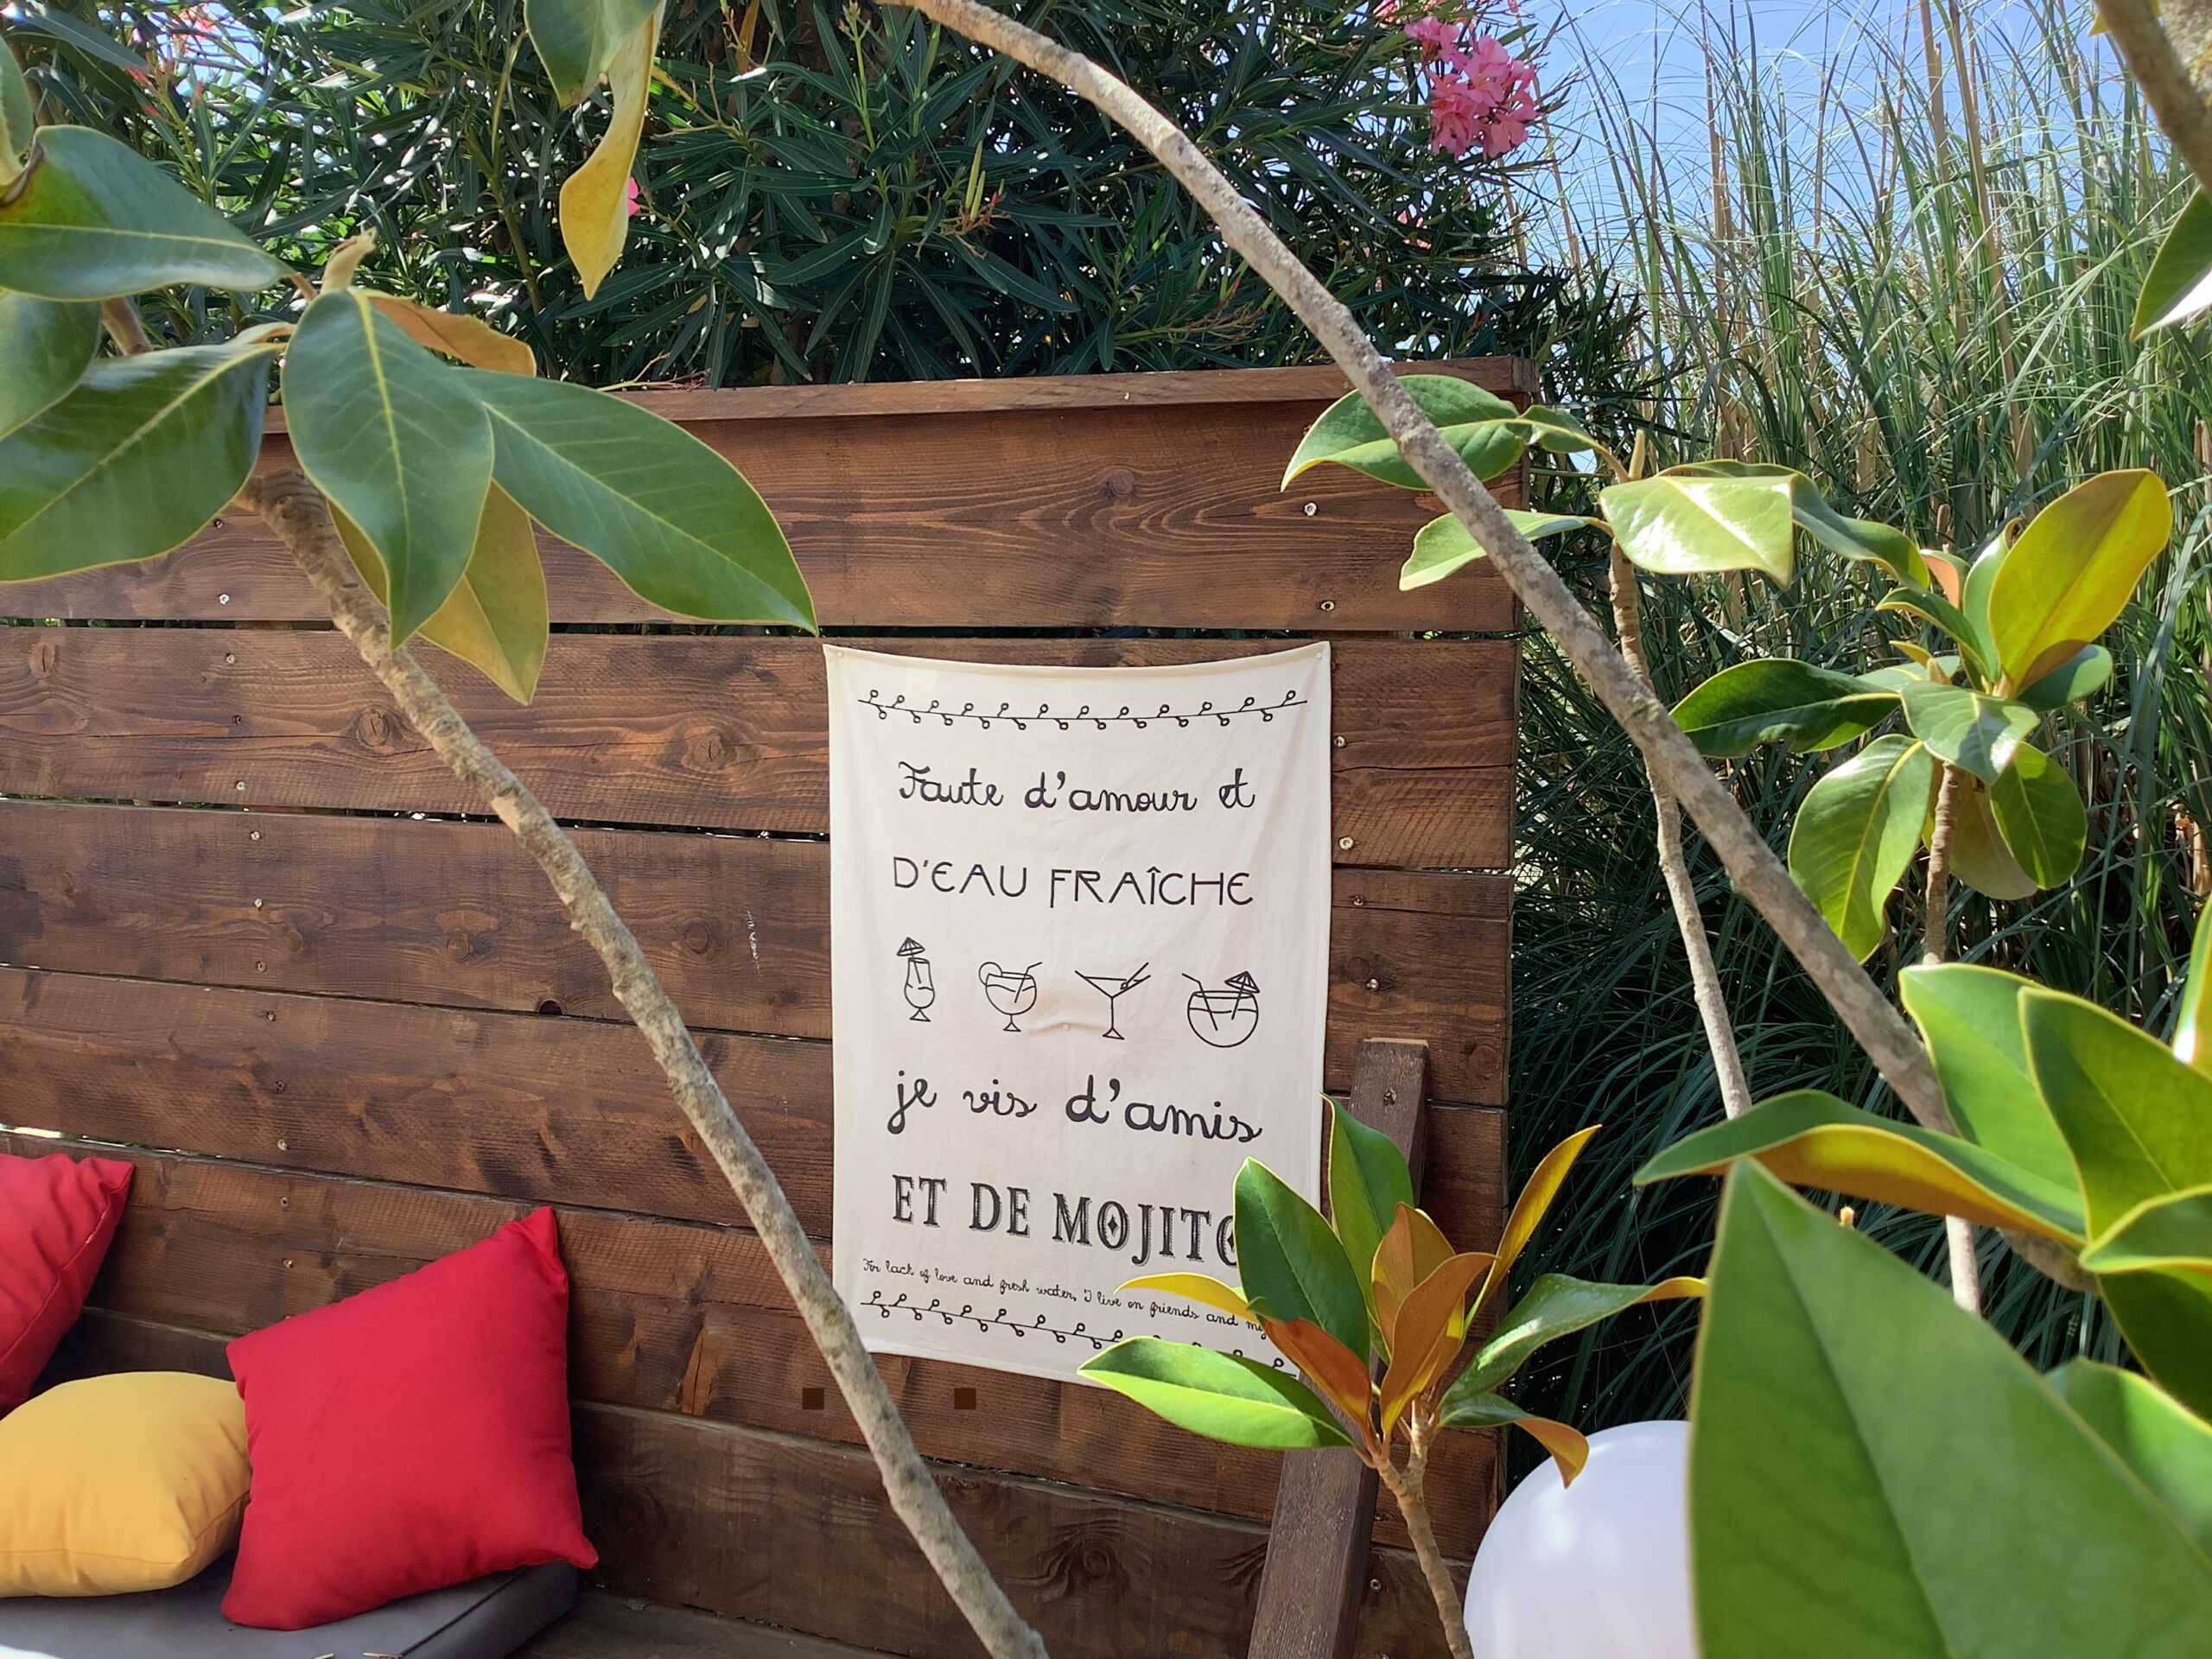 Faute d'amour et
D'EAU FRAÎCHE
je vis d'amis
ET DE MOJITO
For lack of love and fresh water, I live on friends and